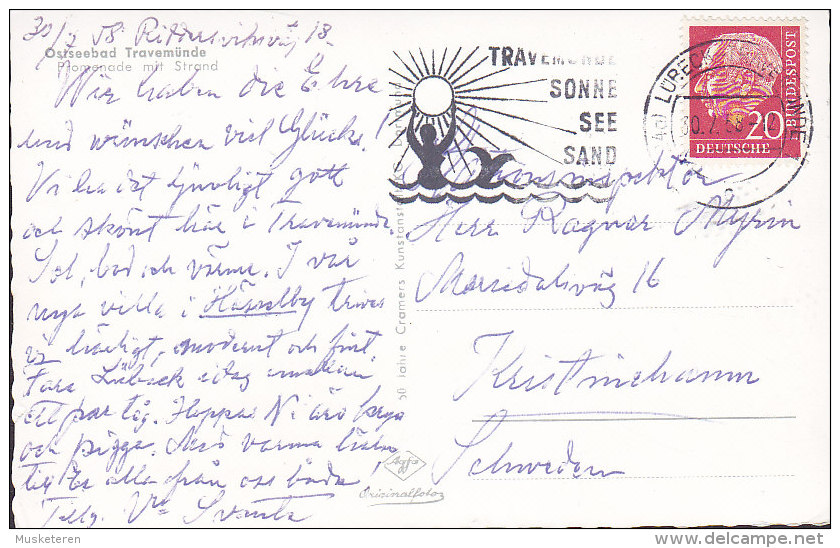 30/7 58.
Ostseebad Travemünde
Promenade mit Strand
Wir haben die Ehre
und wünschen viel Glück!
Vi ha det gott
och skönt här i Travemünde.
Sol, bad och värme. I vår
nya villa i Hässelby trivas
vi härligt, modernt och fint.
Lübeck idag
ett par tåg. Hoppas Ni äro
och pigga. varma
alla från oss båda!
TRAVEMÜNDE
SONNE
SEE
SAND
LÜBECK-TRAVEMÜNDE
30.7.58
20
DEUTSCHE
BUNDESPOST
Herr Ragnar Myrin
16
Kristinehamn
Schweden
50 Jahre Cramers Kunstanstalt KG, Dortmund
Agfa
Originalfoto
© Musketeren
www.delcampe.net